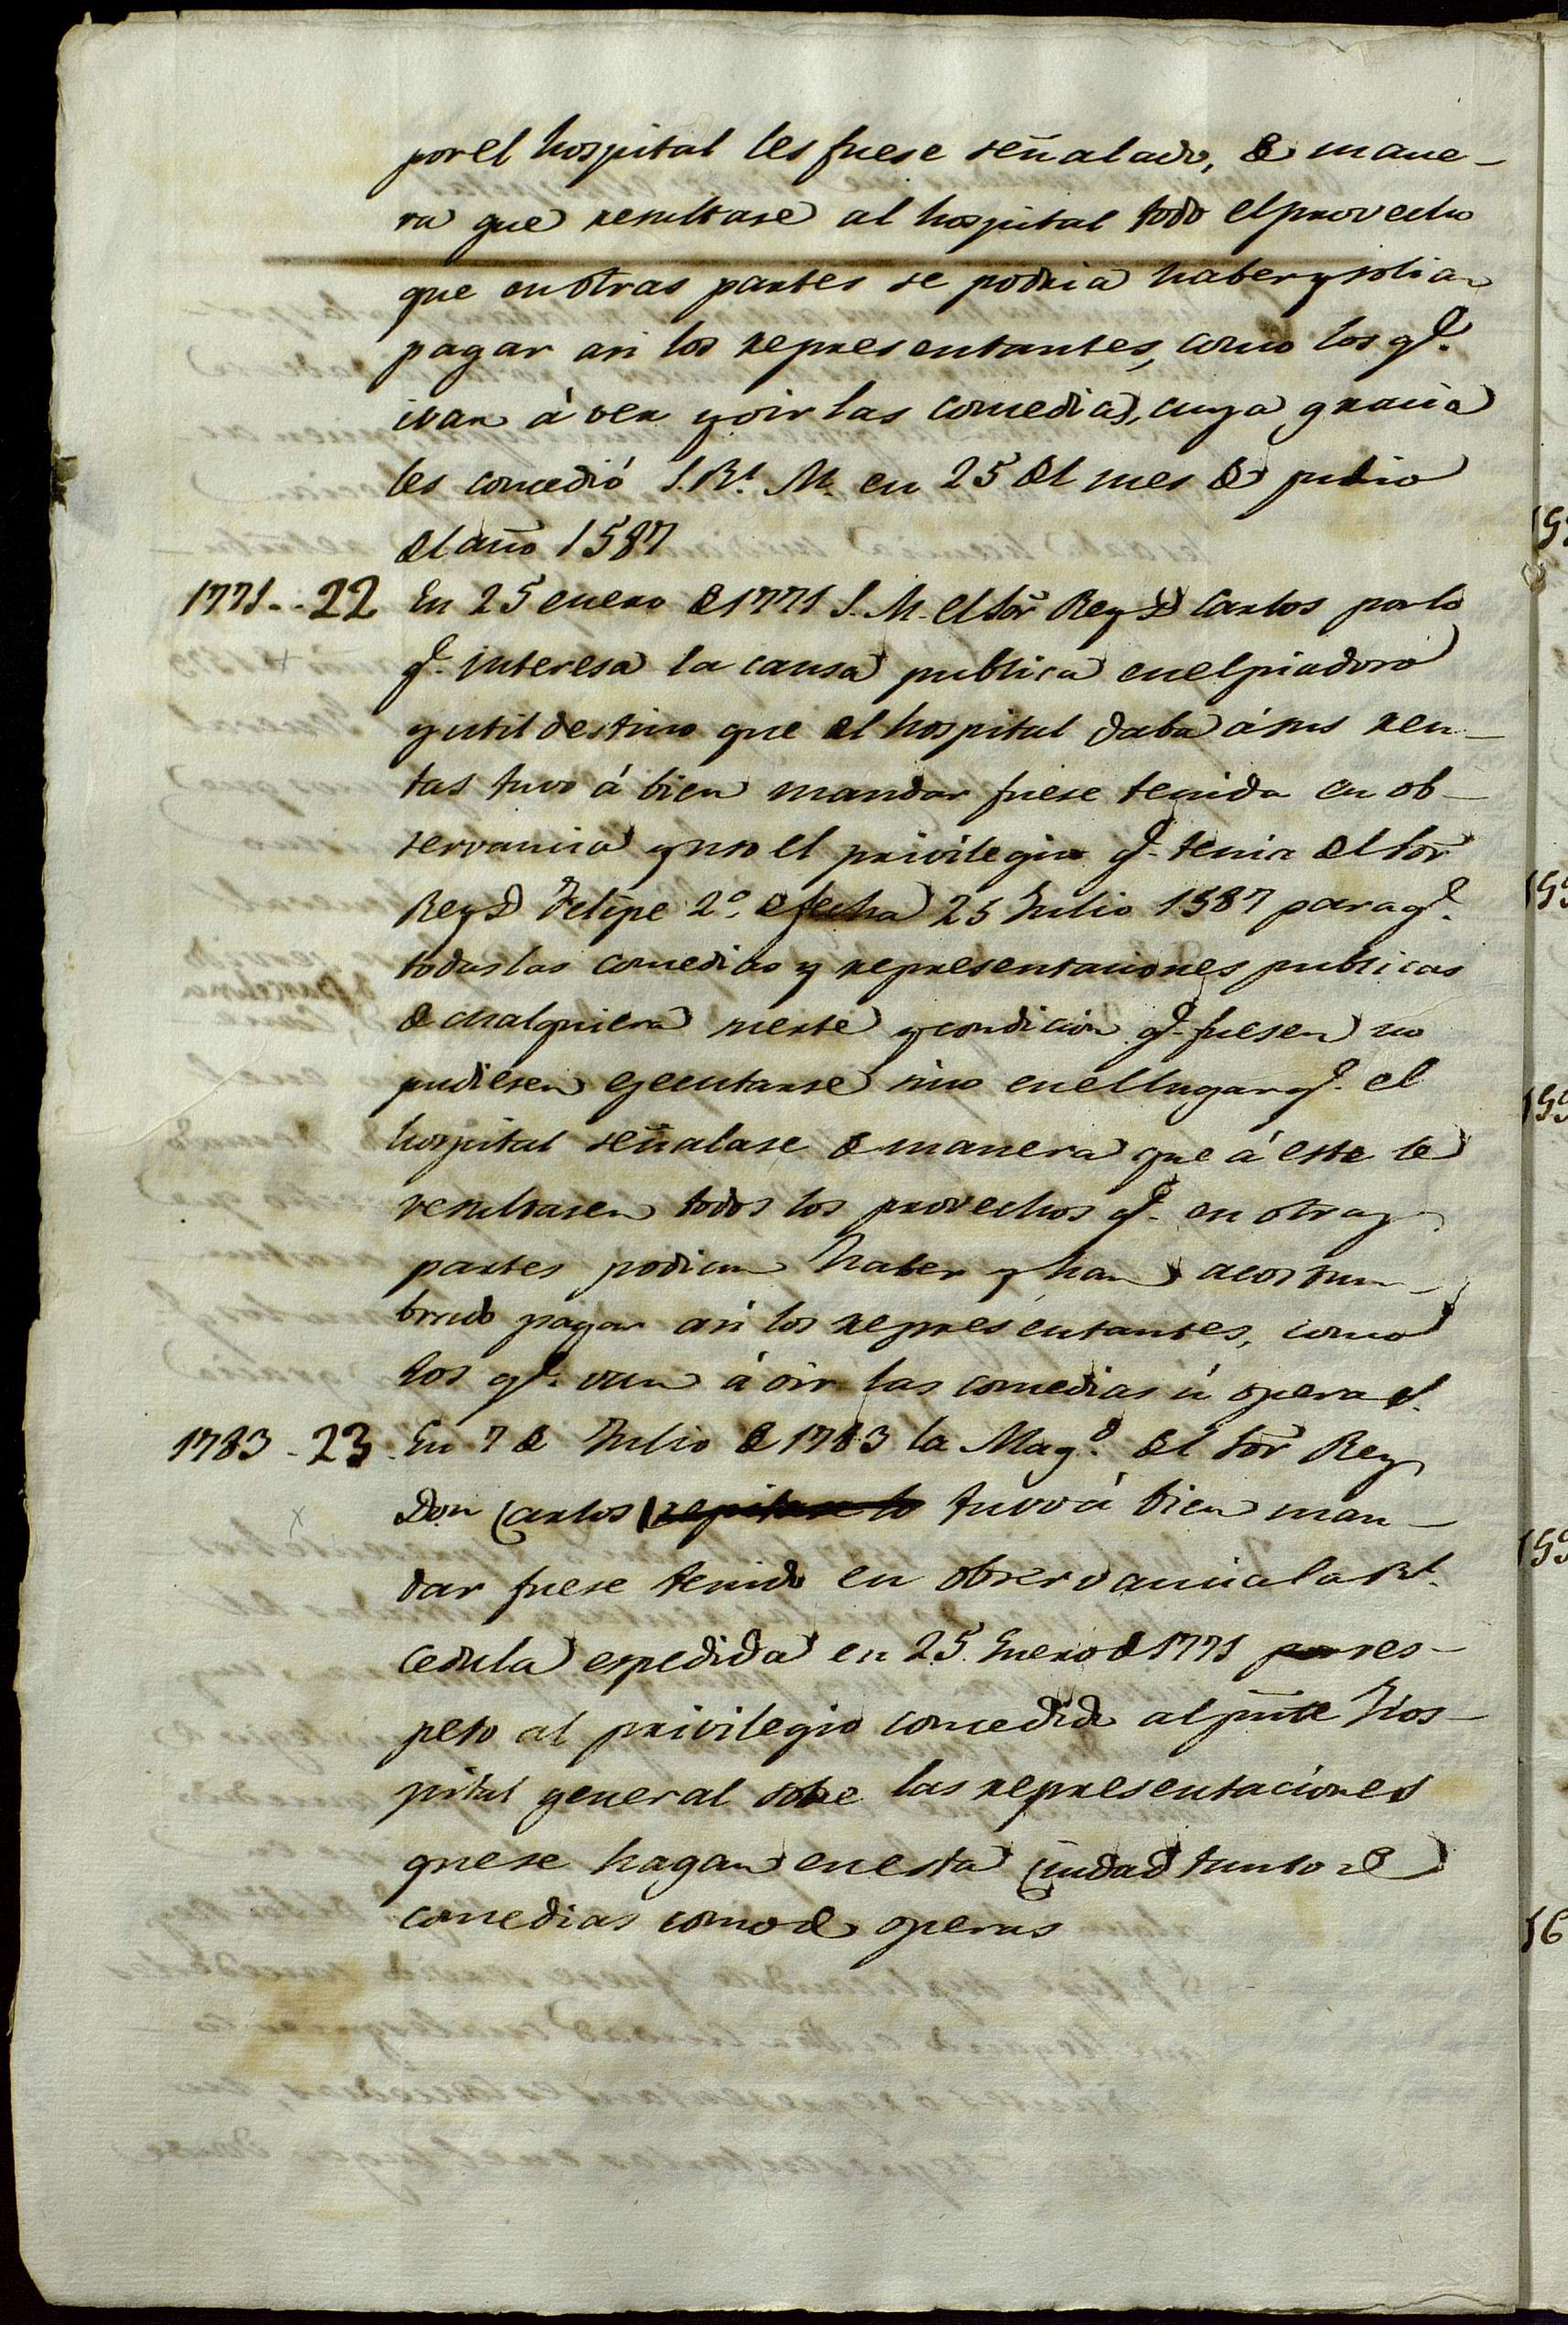 por el hospital les fuese señalado, de mane-
ra que resultase al hospital todo el provecho
que en otras partes se podria haber y solian
pagar asi los representantes, como los q.e
ivan á ver y oir las comedias, cuya gracia
les concedió S. R.l M. en 25 del mes de julio
del año 1587
1771 - - 22 En 25 enero de 1771 S. M. el Sor Rey D Carlos por lo
q.e interesa la causa publica en el piadoso
y util destino que el hospital daba á sus ren-
tas tuvo á bien mandar fuese tenida en ob-
servancia y uso el privilegio q.e tenia del Sor
Rey D Felipe 2º. de fecha 25 Julio 1587 para q.e
todas las comedias y representaciones publicas
de cualquiera suerte y condicion q.e fuesen no
pudiesen ejecutarse sino en el lugar q.e el
hospital señalase de manera que á este le
resultasen todos los provechos q.e en otras
partes podian haber y han acostum-
brado pagar asi los representantes, como
los q.e van á oir las comedias ú operas.
1783 - 23. En 7 de Julio de 1783 la Mag.d del Sor Rey
Don Carlos tuvo á bien man-
dar fuese tenido en observancia la Rl.
cedula espedida en 25. Enero de 1771 por res-
peto al privilegio concedido al pnte Hos-
pital general sobre las representaciones
que se hagan en esta Ciudad tanto de
comedias como de operas